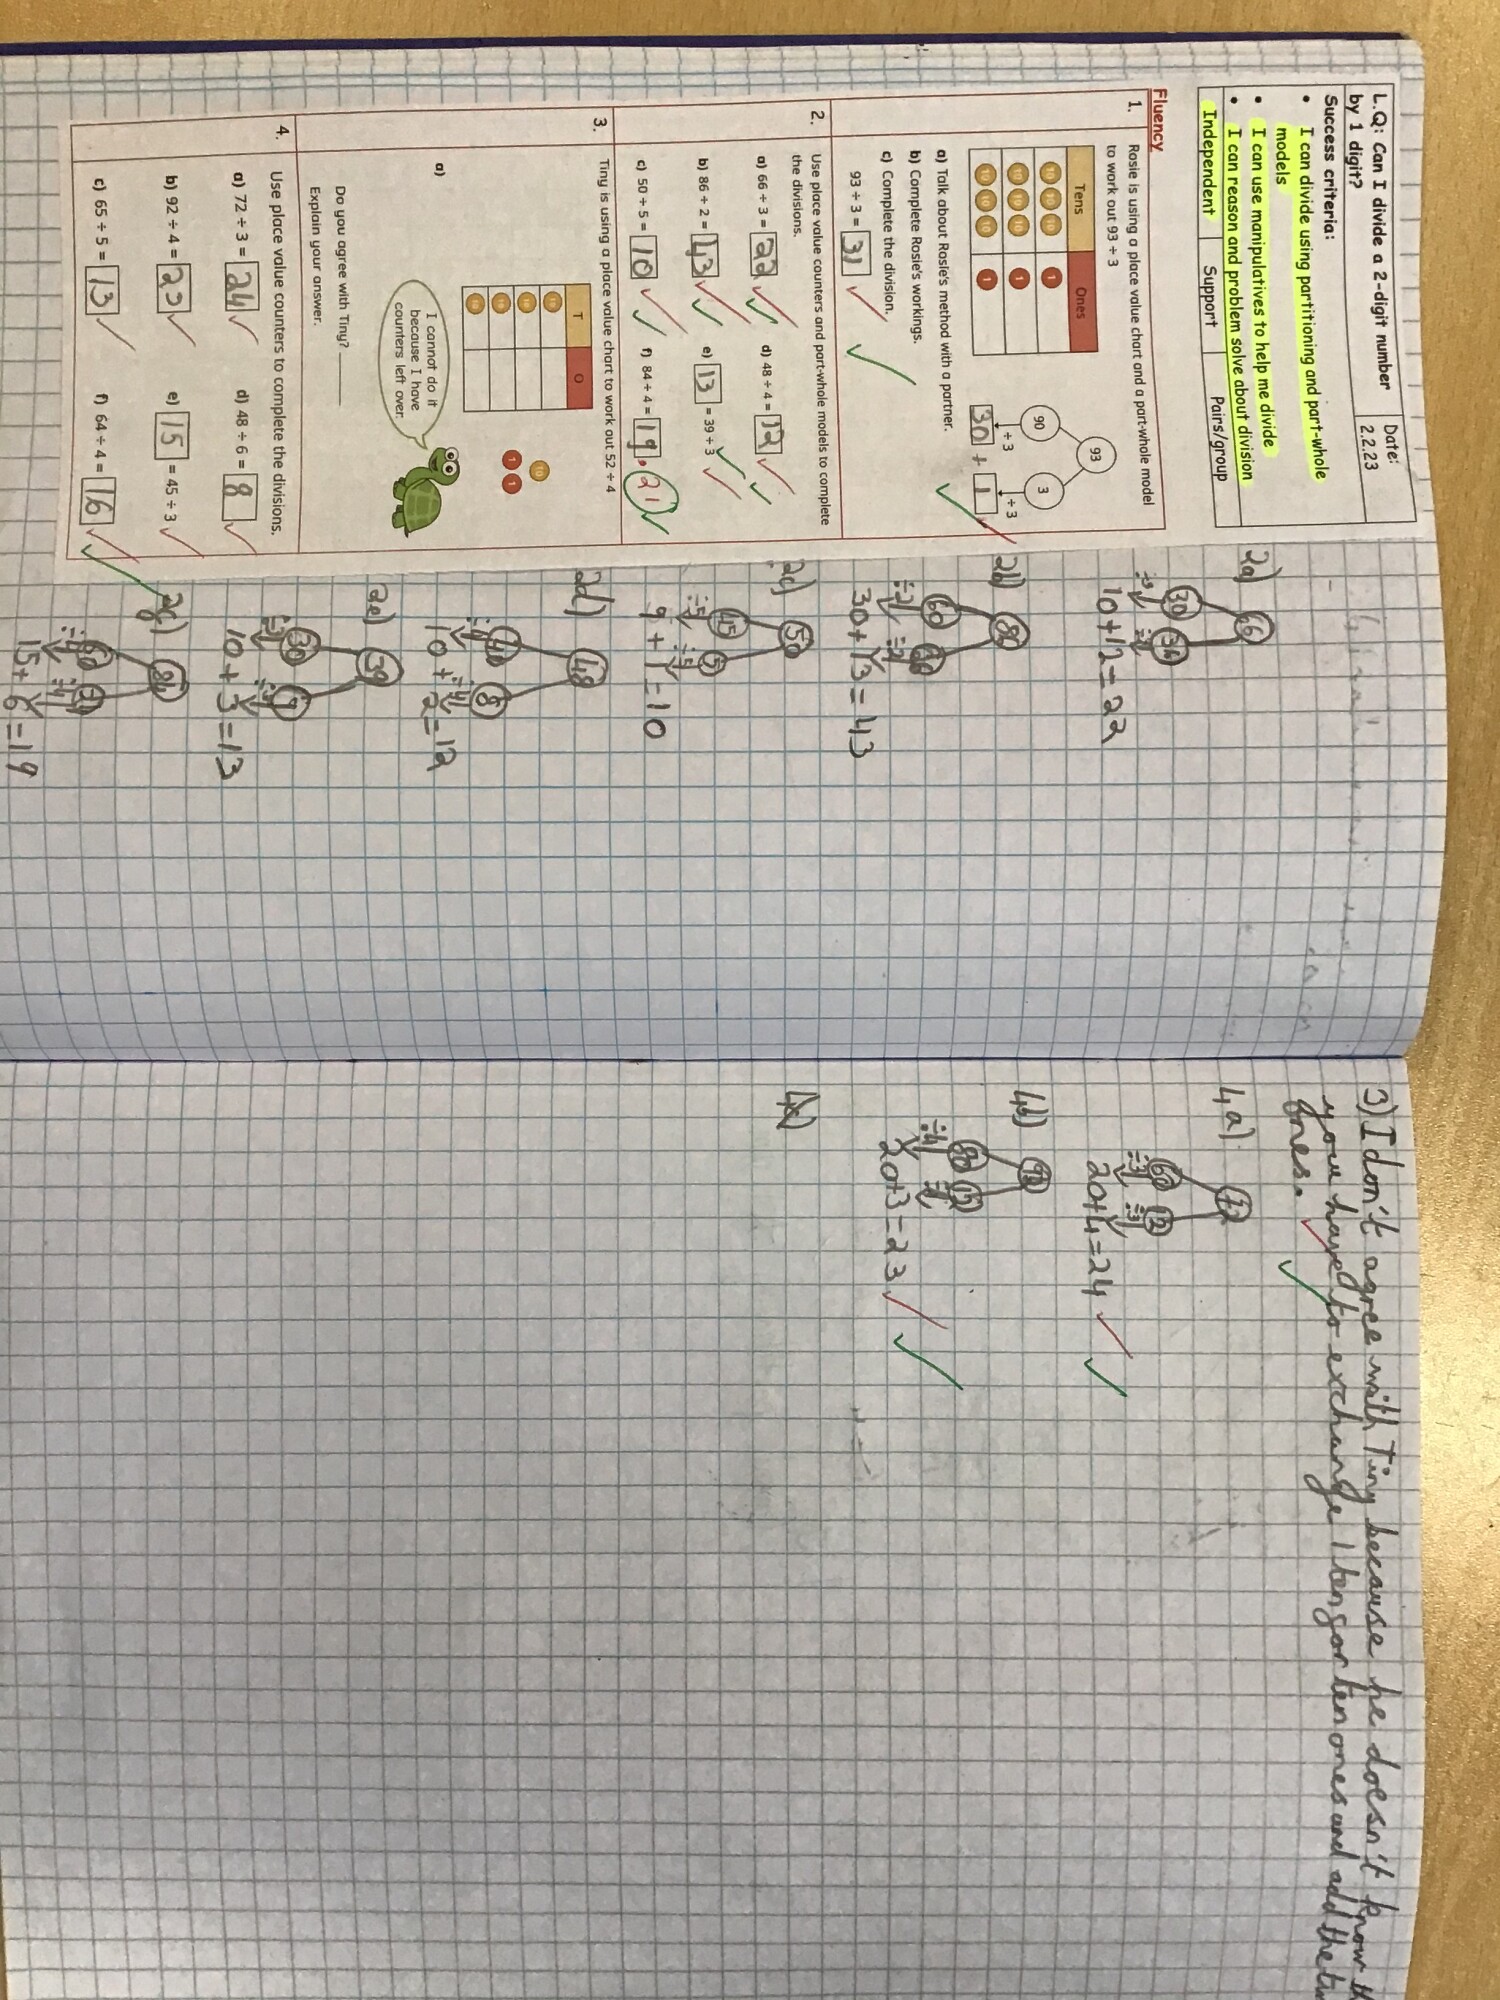 L.Q: Can I divide a 2-digit number
by 1 digit?
Date:
2.2.23
Success criteria:
• I can divide using partitioning and part-whole
models
• I can use manipulatives to help me divide
• I can reason and problem solve about division
Independent Support Pairs/group
Fluency
1. Rosie is using a place value chart and a part-whole model
to work out 93 ÷ 3
Tens Ones
10 10 10 1
10 10 10 1
10 10 10 1
93
90 3
÷ 3 ÷ 3
30 + 1
a) Talk about Rosie's method with a partner.
b) Complete Rosie's workings.
c) Complete the division.
93 ÷ 3 = 31
2. Use place value counters and part-whole models to complete
the divisions.
a) 66 ÷ 3 = 22 d) 48 ÷ 4 = 12
b) 86 ÷ 2 = 43 e) 13 = 39 ÷ 3
c) 50 ÷ 5 = 10 f) 84 ÷ 4 = 19. 21
3. Tiny is using a place value chart to work out 52 ÷ 4
T O
10
10
10
10
10
1 1
I cannot do it
because I have
counters left over.
a)
Do you agree with Tiny?
Explain your answer.
4. Use place value counters to complete the divisions.
a) 72 ÷ 3 = 24 d) 48 ÷ 6 = 8
b) 92 ÷ 4 = 23 e) 15 = 45 ÷ 3
c) 65 ÷ 5 = 13 f) 64 ÷ 4 = 16
2a) 66
30 36
÷3 ÷3
10+12=22
2b)
60
÷2 ÷2
30+13=43
2c) 50
45 5
÷5 ÷5
9+1=10
2d) 48
40 8
÷4 ÷4
10+2=12
2e) 39
30 9
÷3 ÷3
10+3=13
2f) 84
60
÷4 ÷4
15+6=19
3) I don't agree with Tiny because he doesn't know
you have to exchange 1 tens for ten ones and add the
ones.
4a)
60 12
÷3 ÷3
20+4=24
4b) 92
80 12
÷4 ÷4
20+3=23